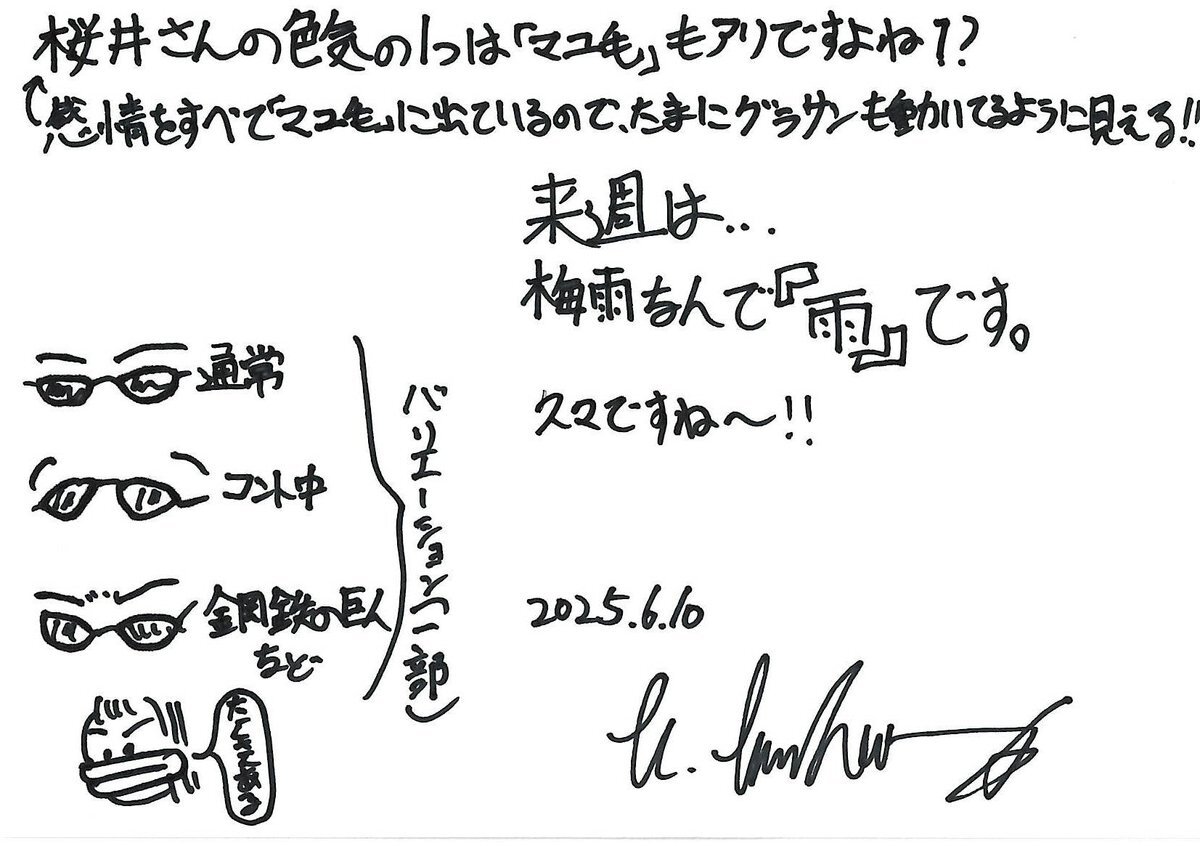 桜井さんの色気の1つは「マユ毛」もアリですよね!?
感情をすべて「マユ毛」に出ているので、たまにグラサンも動いてるように見える!!
来週は…
梅雨なんで『雨』です。
久々ですね〜!!
通常
コント中
鋼鉄の巨人
など
バリエーション(一部)
2025.6.10